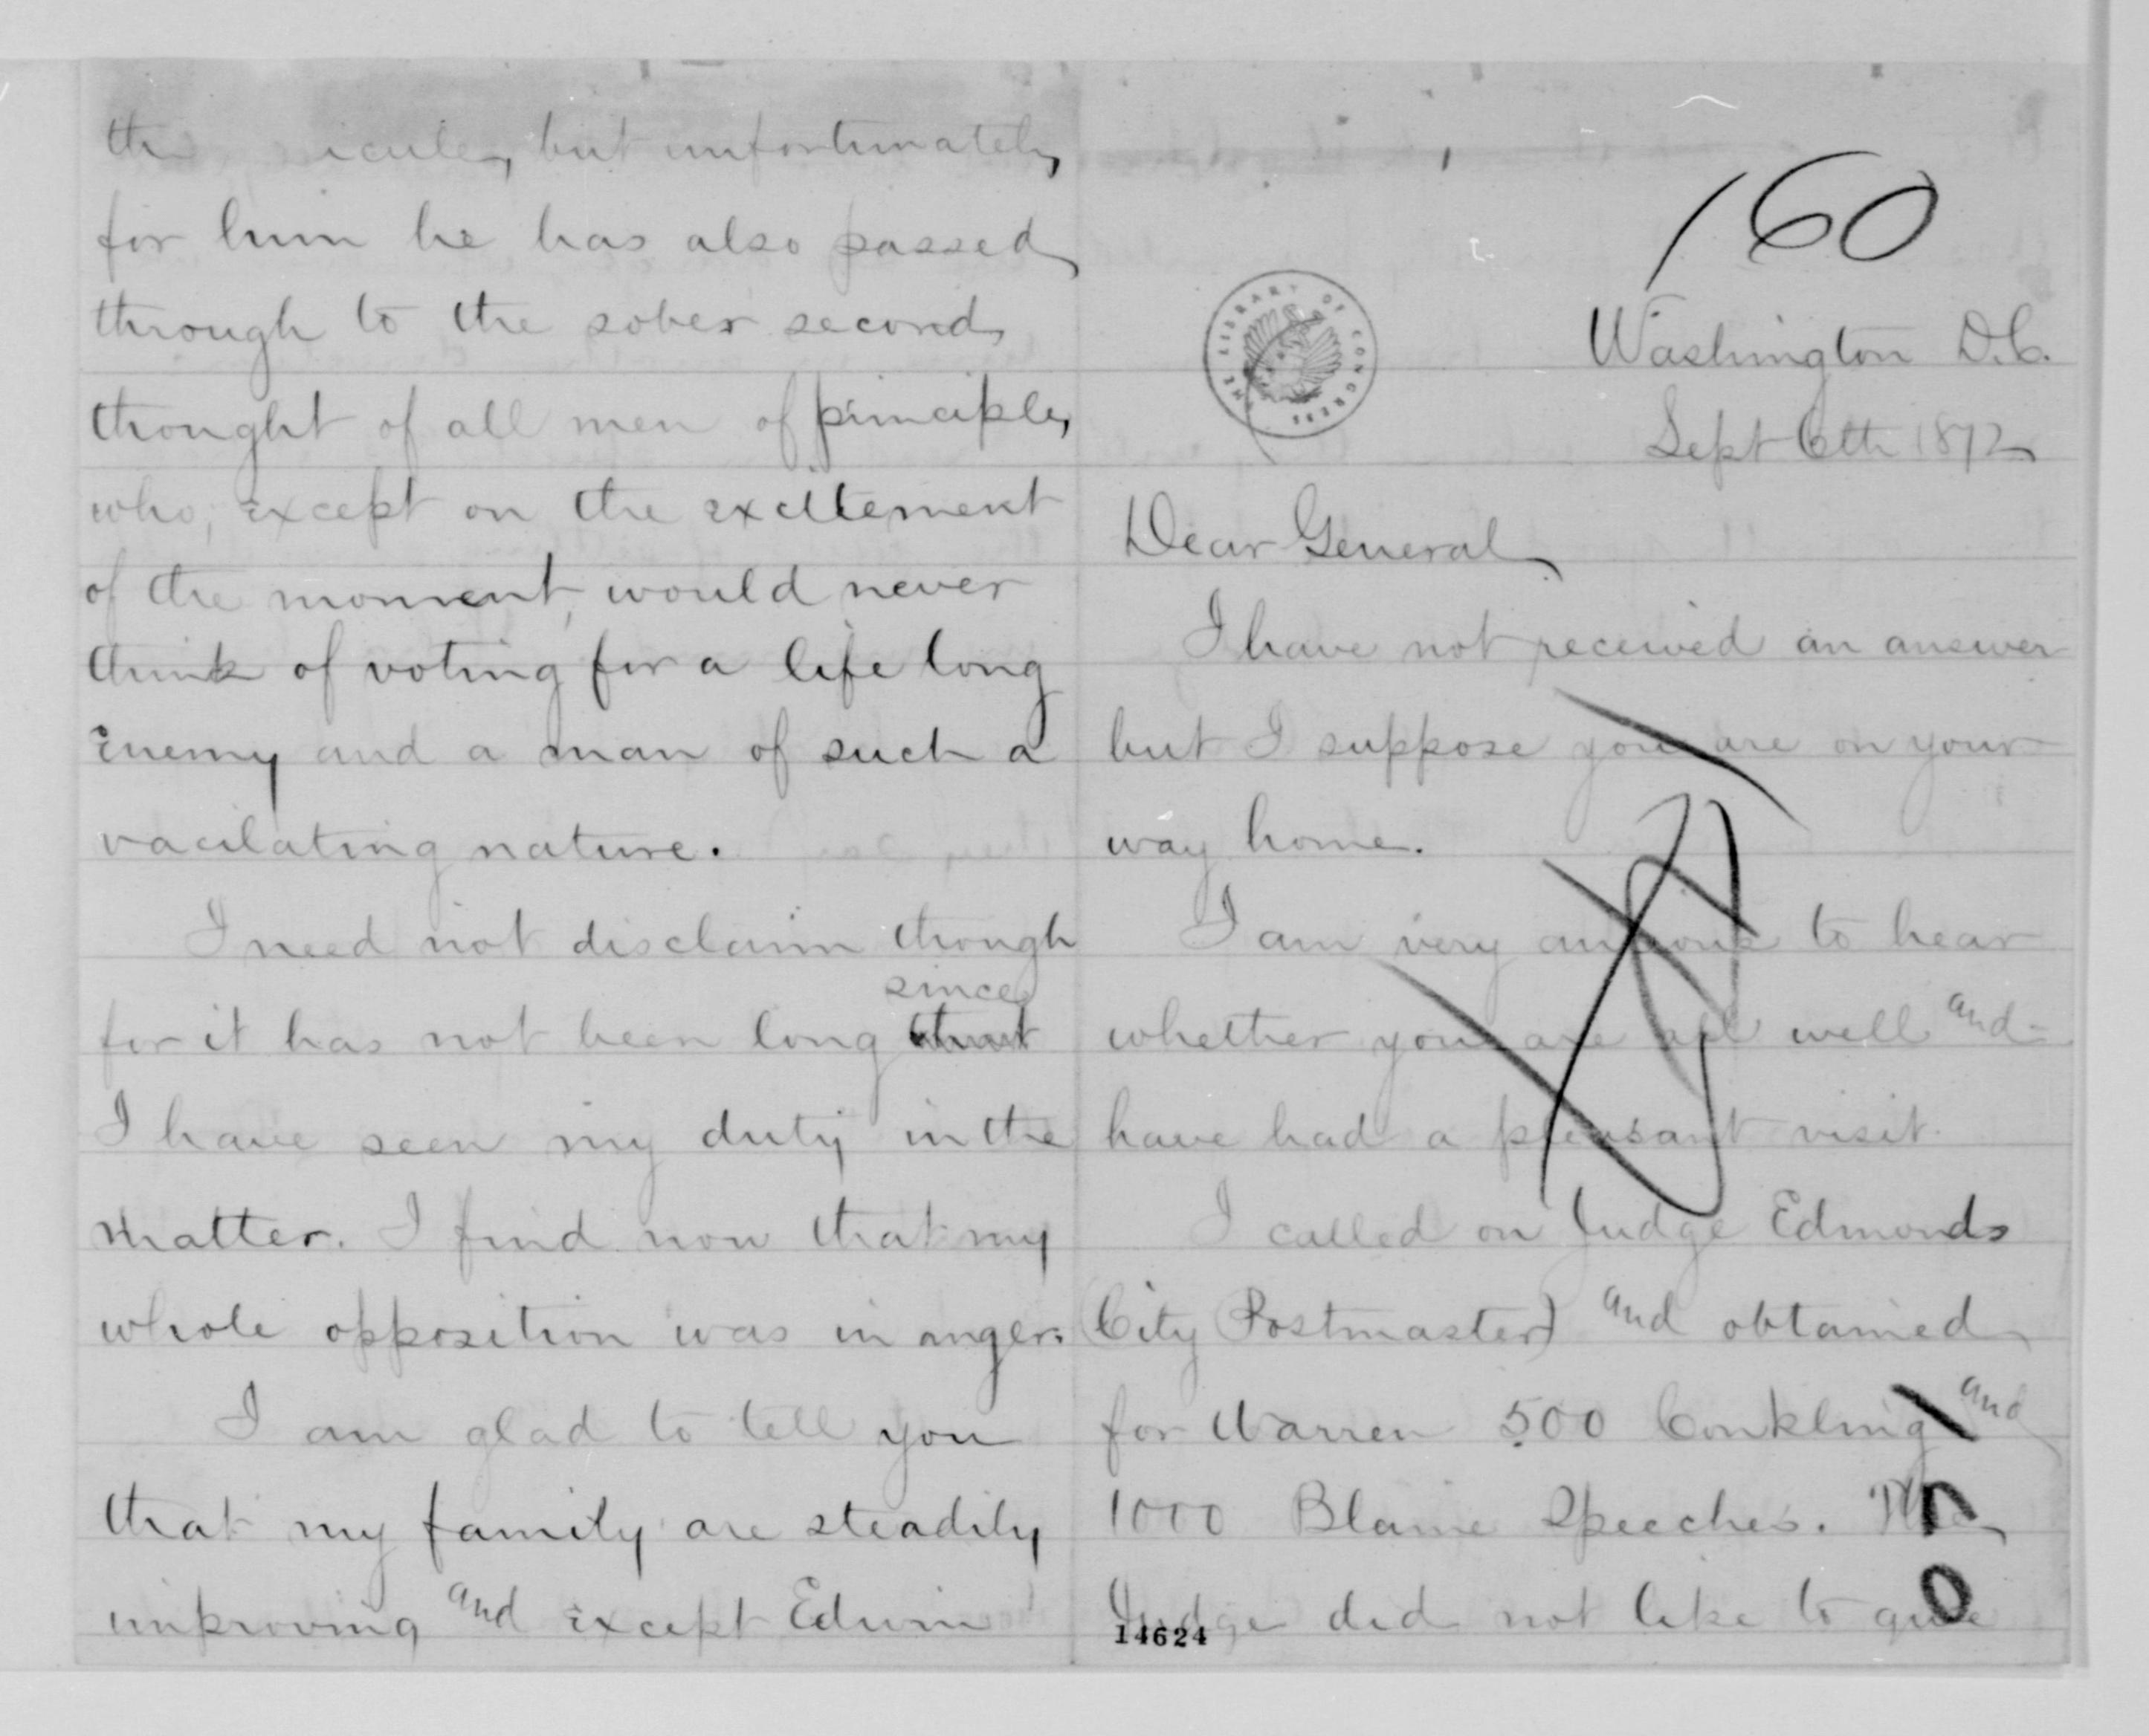 160
THE LIBRARY OF CONGRESS
Washington D.C.
Sept 6th 1872
Dear General
I have not received an answer
but I suppose you are on your
way home.
I am very anxious to hear
whether you are all well and
have had a pleasant visit.
I called on Judge Edmonds
City Postmaster) and obtained
for Warren 500 Conkling and
1000 Blaine Speeches. The
Judge did not like to give
14624
but unfortunately
for him he has also passed
through to the sober second
thought of all men of principle,
who, except on the excitement
of the moment, would never
think of voting for a life long
enemy and a man of such a
vacilating nature.
I need not disclaim though
since
for it has not been long that
I have seen my duty in the
matter. I find now that my
whole opposition was in anger.
I am glad to tell you
that my family are steadily
improving and except Edwin